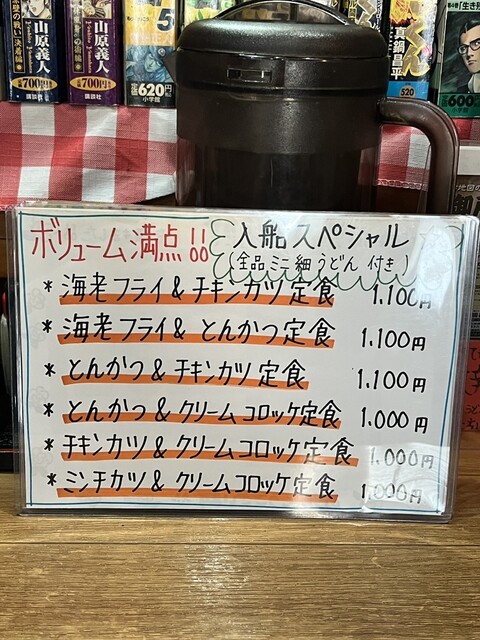 山原義人
700円
講談社
山原義人
700円
講談社
620円
小学館
真鍋昌平
520
600円
小学館
ボリューム満点!!
入船スペシャル
(全品ミニ細うどん付き)
* 海老フライ & チキンカツ定食 1.100円
* 海老フライ & とんかつ定食 1.100円
* とんかつ & チキンカツ定食 1.100円
* とんかつ & クリームコロッケ定食 1.000円
* チキンカツ & クリームコロッケ定食 1.000円
* ミンチカツ & クリームコロッケ定食 1.000円